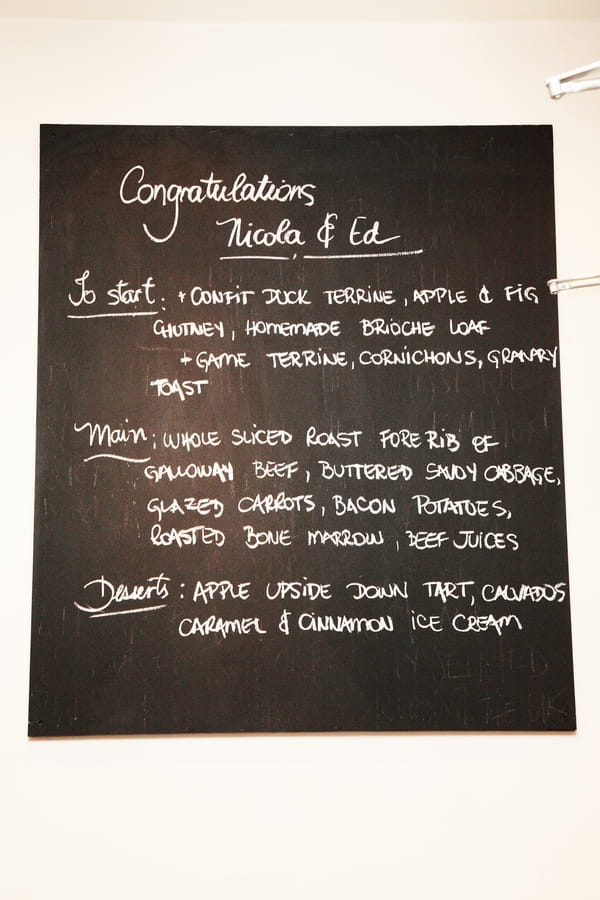 Congratulations
Nicola & Ed
To start: + CONFIT DUCK TERRINE, APPLE & FIG
CHUTNEY, HOMEMADE BRIOCHE LOAF
+ GAME TERRINE, CORNICHONS, GRANARY
TOAST
Main: WHOLE SLICED ROAST FORE RIB OF
GALLOWAY BEEF, BUTTERED SAVOY CABBAGE,
GLAZED CARROTS, BACON POTATOES,
ROASTED BONE MARROW, BEEF JUICES
Desserts: APPLE UPSIDE DOWN TART, CALVADOS
CARAMEL & CINNAMON ICE CREAM